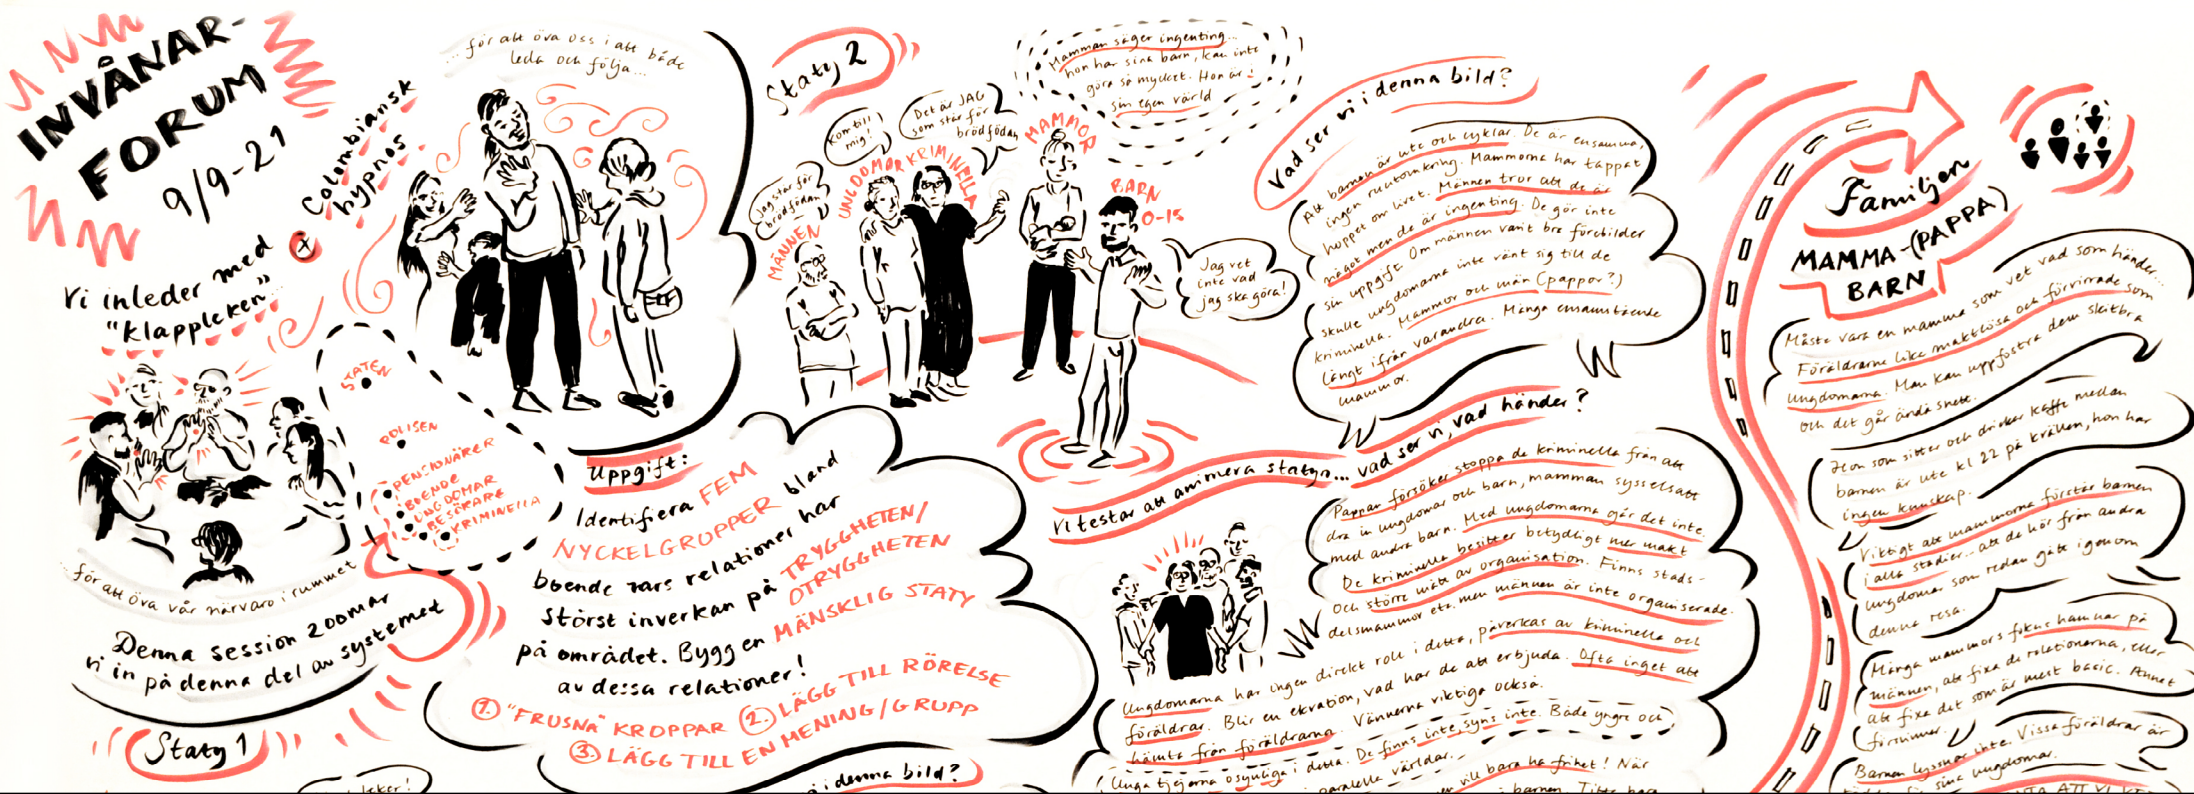 INVÅNAR-
FORUM
9/9-21
Vi inleder med
"klappleken"...
+
Colombiansk
hypnos
...för att öva oss i att både
leda och följa...
STATEN
POLISEN
PENSIONÄRER
BOENDE
UNGDOMAR
BESÖKARE
KRIMINELLA
...för att öva vår närvaro i rummet
Denna session zoomar
vi in på denna del av systemet
Staty 1
Uppgift:
Identifiera FEM
NYCKELGRUPPER bland
boende vars relationer har
störst inverkan på TRYGGHETEN/
OTRYGGHETEN
på området. Bygg en MÄNSKLIG STATY
av dessa relationer!
1. "FRUSNA" KROPPAR 2. LÄGG TILL RÖRELSE
3. LÄGG TILL EN MENING/GRUPP
i denna bild?
Staty 2
Jag står för
brödfödan
MÄNNEN
Kom till
mig!
UNGDOMAR
Det är JAG
som står för
brödfödan
KRIMINELLA
Mamman säger ingenting...
hon har sina barn, kan inte
göra så mycket. Hon är i
sin egen värld
MAMMOR
BARN
0-15
Jag vet
inte vad
jag ska göra!
Vad ser vi i denna bild?
Att barnen är ute och cyklar. De är ensamma,
ingen runtomkring. Mammorna har tappat
hoppet om livet. Männen tror att de är
något men de är ingenting. De gör inte
sin uppgift. Om männen varit bra förebilder
skulle ungdomarna inte vänt sig till de
kriminella. Mammor och män (pappor?)
långt ifrån varandra. Många ensamstående
mammor.
Vi testar att animera statyn... vad ser vi, vad händer?
Pappan försöker stoppa de kriminella från att
dra in ungdomar och barn, mamman sysselsatt
med andra barn. Med ungdomarna går det inte.
De kriminella besitter betydligt mer makt
och större mått av organisation. Finns stads-
delsmammor etc men männen är inte organiserade.
Ungdomarna har ingen direkt roll i detta, påverkas av kriminella och
föräldrar. Blir en ekvation, vad har de att erbjuda. Ofta inget att
hämta från föräldrarna. Vännerna viktiga också.
Unga tjejerna osynliga i detta. De finns inte, syns inte. Både yngre och
parallella världar.
vill bara ha frihet! När
barnen.
Familjen
MAMMA-(PAPPA)
BARN
Måste vara en mamma som vet vad som händer...
Föräldrarna lika maktlösa och förvirrade som
ungdomarna. Man kan uppfostra dem skitbra
och det går ändå snett.
Hon som sitter och dricker kaffe medan
barnen är ute kl 22 på kvällen, hon har
ingen kunskap.
Viktigt att mammorna förstår barnen
i alla stadier.. att de hör från andra
ungdomar som redan gått igenom
denna resa.
Många mammors fokus hamnar på
männen, att fixa de relationerna, eller
att fixa det som är mest basic. Annat
försvinner.
Barnen lyssnar inte. Vissa föräldrar är
sina ungdomar.